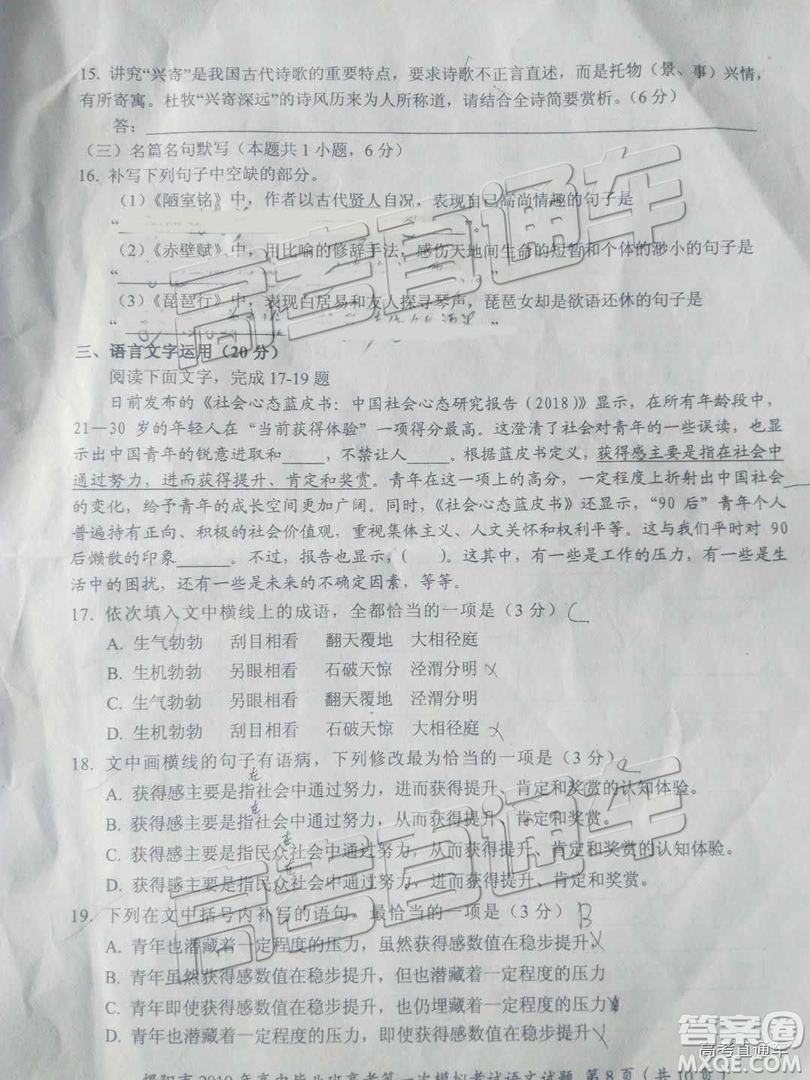 15. 讲究“兴寄”是我国古代诗歌的重要特点，要求诗歌不正言直述，而是托物（景、事）兴情，
有所寄寓。杜牧“兴寄深远”的诗风历来为人所称道，请结合全诗简要赏析。（6 分）
答：
（三）名篇名句默写（本题共 1 小题，6 分）
16. 补写下列句子中空缺的部分。
（1）《陋室铭》中，作者以古代贤人自况，表现自己高尚情趣的句子是
“ ”。
（2）《赤壁赋》中，用比喻的修辞手法，感伤天地间生命的短暂和个体的渺小的句子是
“ ”
（3）《琵琶行》中，表现白居易和友人探寻琴声，琵琶女却是欲语还休的句子是
“ ”
三、语言文字运用（20 分）
阅读下面文字，完成 17-19 题
日前发布的《社会心态蓝皮书：中国社会心态研究报告（2018）》显示，在所有年龄段中，
21—30 岁的年轻人在“当前获得体验”一项得分最高。这澄清了社会对青年的一些误读，也显
示出中国青年的锐意进取和____，不禁让人____。根据蓝皮书定义，获得感主要是指在社会中
通过努力，进而获得提升、肯定和奖赏。青年在这一项上的高分，一定程度上折射出中国社会____
的变化，给予青年的成长空间更加广阔。同时，《社会心态蓝皮书》还显示，“90 后”青年个人
普遍持有正向、积极的社会价值观，重视集体主义、人文关怀和权利平等。这与我们平时对 90
后懒散的印象____。不过，报告也显示，（ ）。这其中，有一些是工作的压力，有一些是生
活中的困扰，还有一些是未来的不确定因素，等等。
17. 依次填入文中横线上的成语，全部恰当的一项是（3 分） C
A. 生气勃勃 刮目相看 翻天覆地 大相径庭
B. 生机勃勃 另眼相看 石破天惊 泾渭分明
C. 生气勃勃 另眼相看 翻天覆地 泾渭分明
D. 生机勃勃 刮目相看 石破天惊 大相径庭
18. 文中画横线的句子有语病，下列修改最为恰当的一项是（3 分）
A. 获得感主要是指社会中通过努力，进而获得提升、肯定和奖赏的认知体验。
B. 获得感主要是指社会中通过努力，从而获得提升、肯定和奖赏。
C. 获得感主要是指民众社会中通过努力，从而获得提升、肯定和奖赏的认知体验。
D. 获得感主要是指民众社会中通过努力，进而获得提升、肯定和奖赏。
19. 下列在文中括号内补写的语句，最恰当的一项是（3 分） B
A. 青年也潜藏着一定程度的压力，虽然获得感数值在稳步提升
B. 青年虽然获得感数值在稳步提升，但也潜藏着一定程度的压力
C. 青年即使获得感数值在稳步提升，也仍埋藏着一定程度的压力
D. 青年也潜藏着一定程度的压力，即使获得感数值在稳步提升
揭阳市 2019 年高中毕业班高考第一次模拟考试语文试题 第 8 页（共 10 页）
高考直通车
高考直通车
答案圈
高考直通车
MXQE.COM